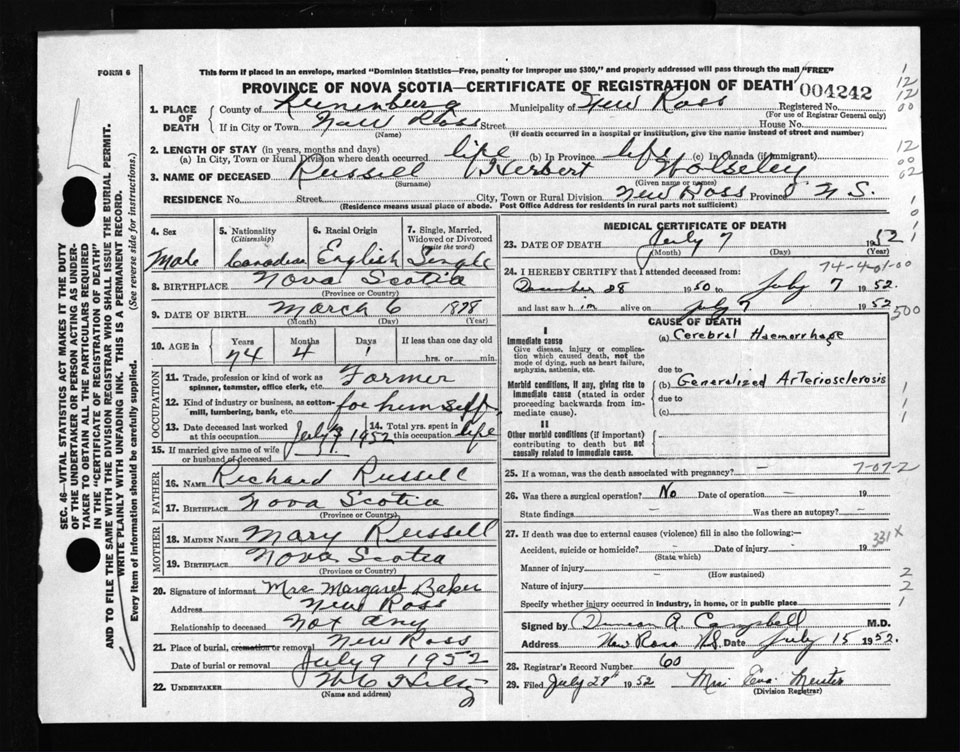 FORM 6
This form if placed in an envelope, marked "Dominion Statistics—Free, penalty for improper use $300," and properly addressed will pass through the mail "FREE"
PROVINCE OF NOVA SCOTIA—CERTIFICATE OF REGISTRATION OF DEATH
004242
1. PLACE OF DEATH County of Lunenburg Municipality of New Ross Registered No.
(For use of Registrar General only)
If in City or Town New Ross Street House No.
(Name) (If death occurred in a hospital or institution, give the name instead of street and number)
2. LENGTH OF STAY (in years, months and days)
(a) In City, Town or Rural Division where death occurred life (b) In Province life (c) In Canada (if immigrant)
3. NAME OF DECEASED Russell Herbert Wolseley
(Surname) (Given name or names)
RESIDENCE No. Street City, Town or Rural Division New Ross Province N S.
(Residence means usual place of abode. Post Office Address for residents in rural parts not sufficient)
4. Sex Male
5. Nationality (Citizenship) Canadian
6. Racial Origin English
7. Single, Married, Widowed or Divorced (write the word) Single
8. BIRTHPLACE Nova Scotia
(Province or Country)
9. DATE OF BIRTH March 6 1878
(Month) (Day) (Year)
10. AGE in Years 74 Months 4 Days 1 If less than one day old hrs. or min.
OCCUPATION
11. Trade, profession or kind of work as spinner, teamster, office clerk, etc. Farmer
12. Kind of industry or business, as cotton-mill, lumbering, bank, etc. for himself
13. Date deceased last worked at this occupation July 1952
14. Total yrs. spent in this occupation life
15. If married give name of wife or husband of deceased
FATHER
16. NAME Richard Russell
17. BIRTHPLACE Nova Scotia
(Province or Country)
MOTHER
18. MAIDEN NAME Mary Russell
19. BIRTHPLACE Nova Scotia
(Province or Country)
20. Signature of informant Mrs Margaret Baker
Address New Ross
Relationship to deceased Not any
21. Place of burial, cremation or removal New Ross
Date of burial or removal July 9 1952
22. UNDERTAKER
(Name and address)
MEDICAL CERTIFICATE OF DEATH
23. DATE OF DEATH July 7 1952
(Month) (Day) (Year)
74-4-01-00
24. I HEREBY CERTIFY that I attended deceased from:
December 28 1950 to July 7 1952.
and last saw him alive on July 7 1952
500
CAUSE OF DEATH
I
Immediate cause
Give disease, injury or complication which caused death, not the mode of dying, such as heart failure, asphyxia, asthenia, etc.
(a) Cerebral Haemorrhage
due to
Morbid conditions, if any, giving rise to immediate cause (stated in order proceeding backwards from immediate cause).
(b) Generalized Arteriosclerosis
due to
(c)
II
Other morbid conditions (if important) contributing to death but not causally related to immediate cause.
25. If a woman, was the death associated with pregnancy? —
7-07-2
26. Was there a surgical operation? No Date of operation — 19
State findings — Was there an autopsy? —
27. If death was due to external causes (violence) fill in also the following:—
331X
Accident, suicide or homicide? Date of injury 19
(State which)
Manner of injury
(How sustained)
Nature of injury
Specify whether injury occurred in industry, in home, or in public place
Signed by Duncan A. Campbell M.D.
Address New Ross N.S. Date July 15 1952.
28. Registrar's Record Number 60
29. Filed July 29th 1952 Mrs. Eva Meister
(Division Registrar)
SEC. 46—VITAL STATISTICS ACT MAKES IT THE DUTY
OF THE UNDERTAKER OR PERSON ACTING AS UNDER-
TAKER TO OBTAIN ALL THE PARTICULARS REQUIRED
IN THE "CERTIFICATE OF REGISTRATION OF DEATH"
AND TO FILE THE SAME WITH THE DIVISION REGISTRAR WHO SHALL ISSUE THE BURIAL PERMIT.
WRITE PLAINLY WITH UNFADING INK. THIS IS A PERMANENT RECORD.
Every item of information should be carefully supplied. (See reverse side for instructions.)